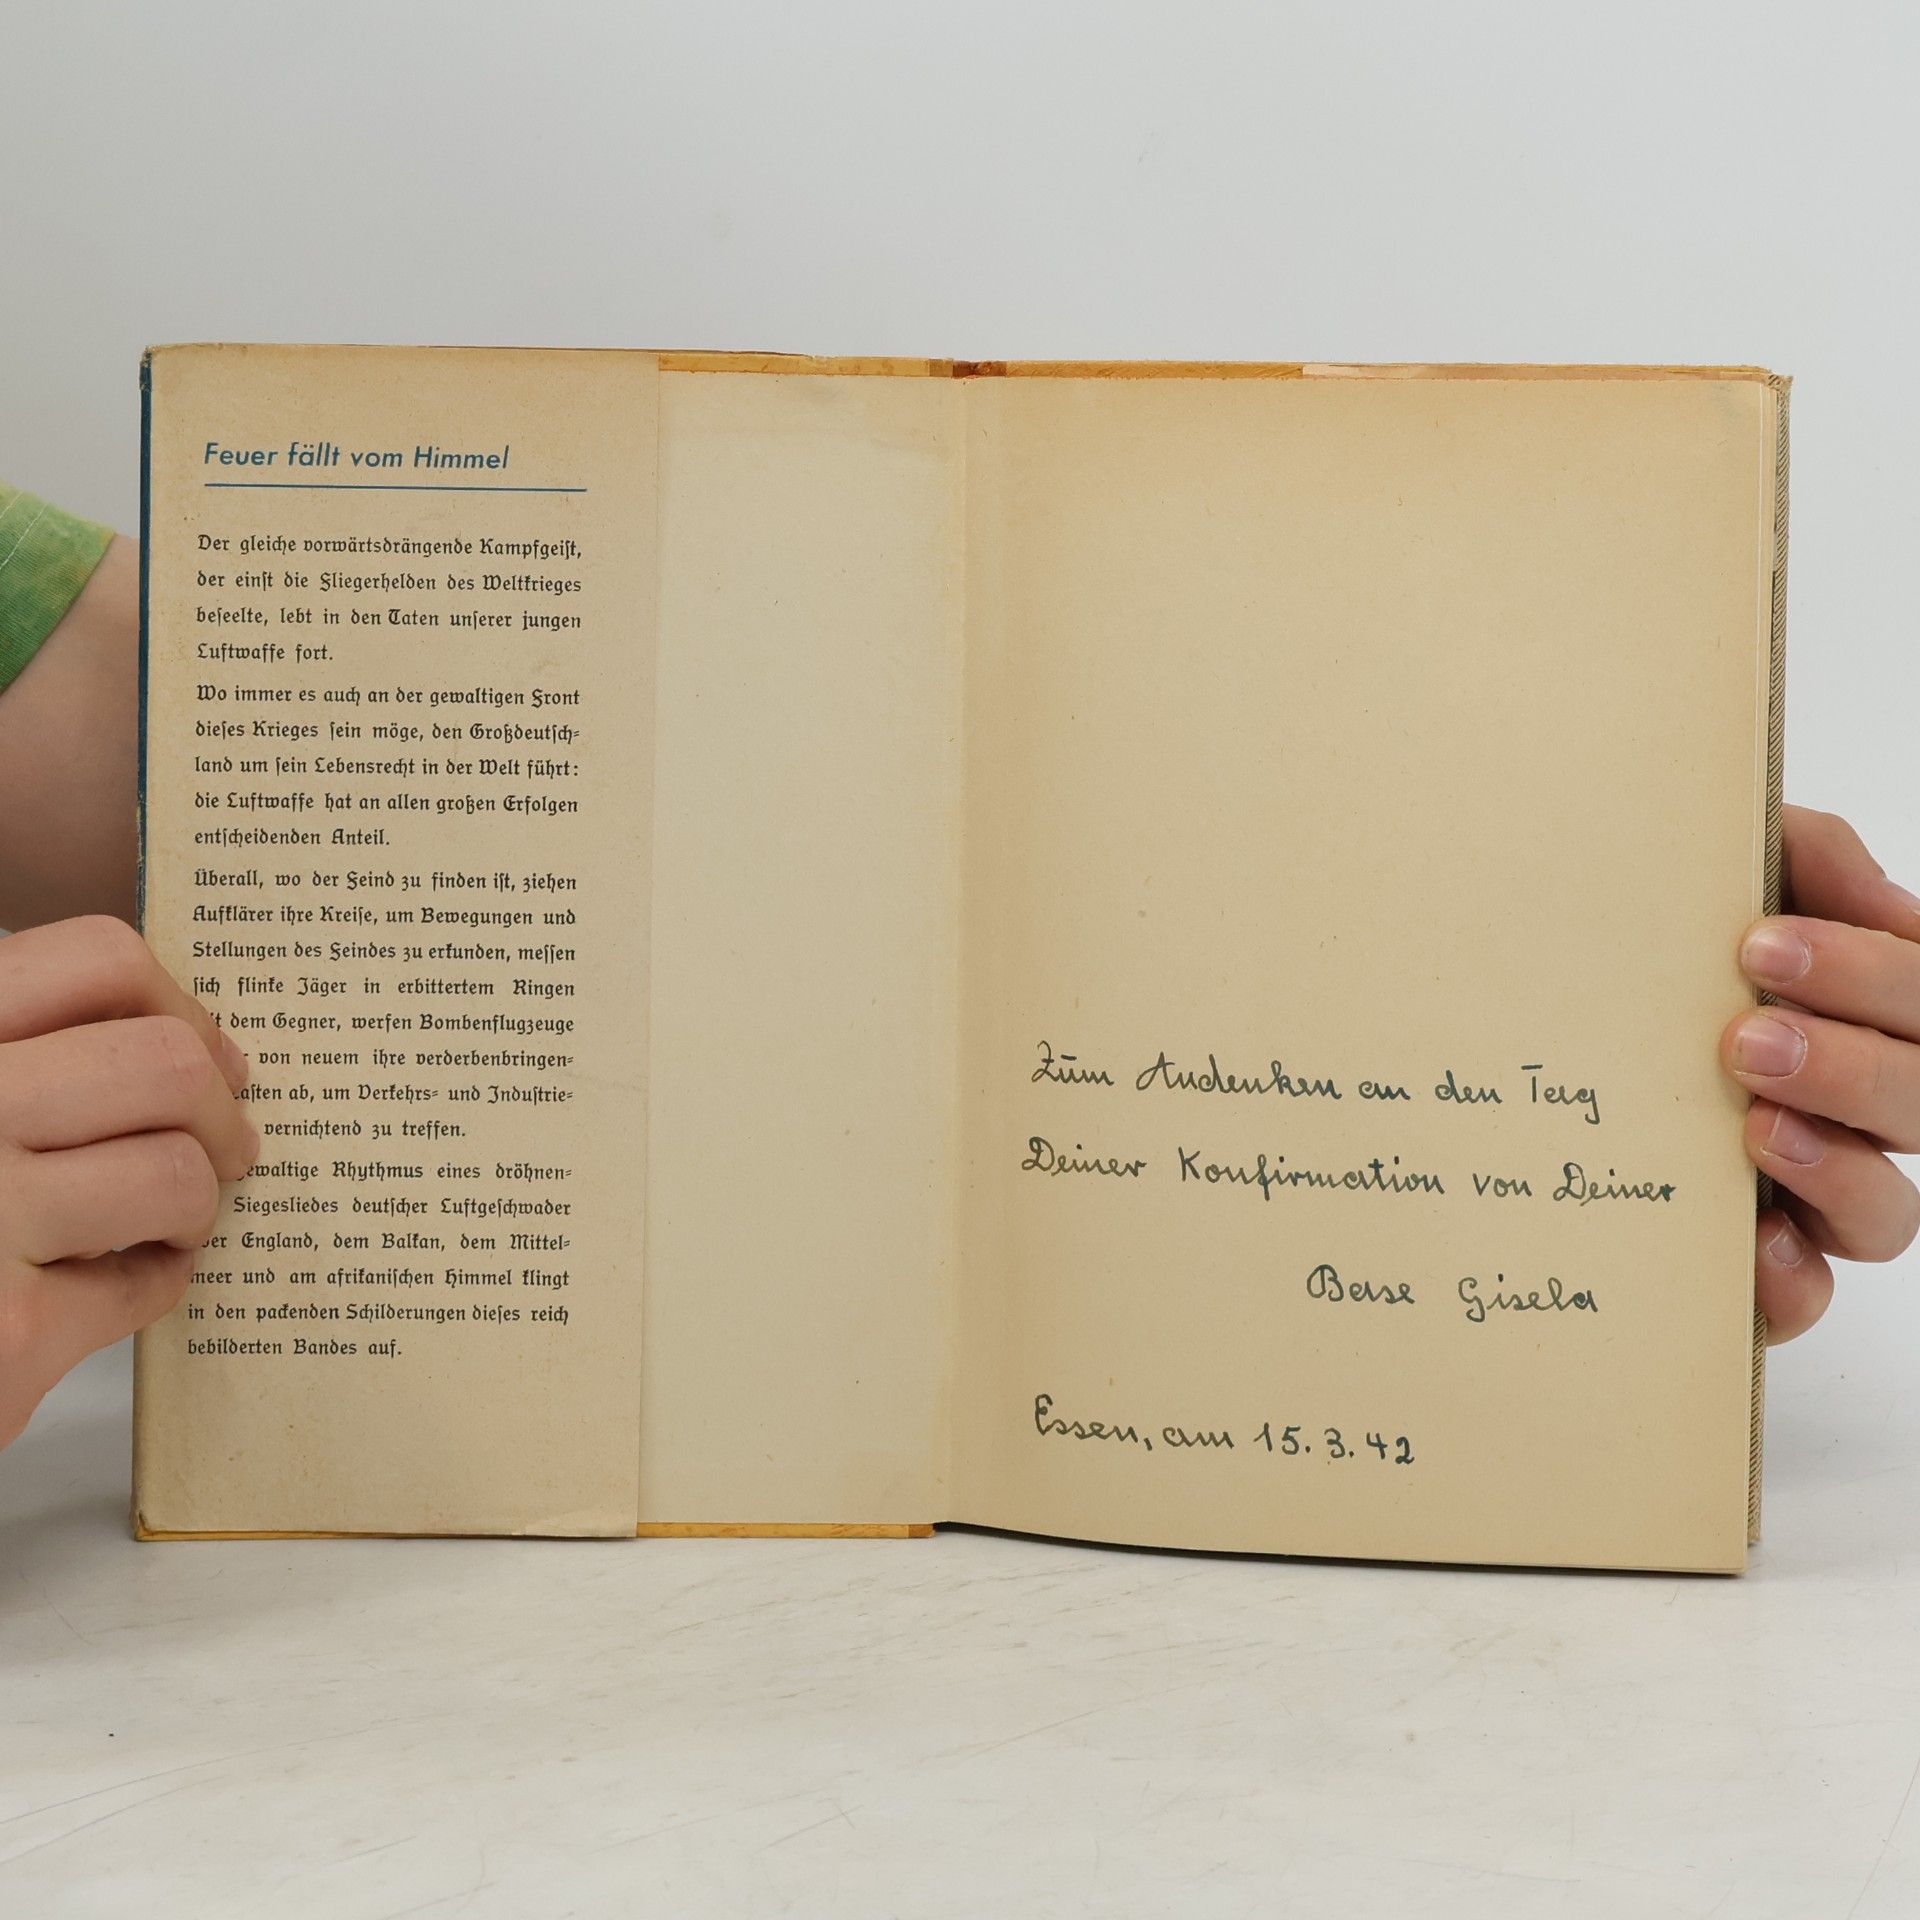 Feuer fällt vom Himmel
Der gleiche vorwärtsdrängende Kampfgeist,
der einst die Fliegerhelden des Weltkrieges
beseelte, lebt in den Taten unserer jungen
Luftwaffe fort.
Wo immer es auch an der gewaltigen Front
dieses Krieges sein möge, den Großdeutsch-
land um sein Lebensrecht in der Welt führt:
die Luftwaffe hat an allen großen Erfolgen
entscheidenden Anteil.
Überall, wo der Feind zu finden ist, ziehen
Aufklärer ihre Kreise, um Bewegungen und
Stellungen des Feindes zu erkunden, messen
sich flinke Jäger in erbittertem Ringen
dem Gegner, werfen Bombenflugzeuge
von neuem ihre verderbenbringen-
ab, um Verkehrs- und Industrie-
vernichtend zu treffen.
Rhythmus eines dröhnen-
Siegesliedes deutscher Luftgeschwader
England, dem Balkan, dem Mittel-
meer und am afrikanischen Himmel klingt
in den packenden Schilderungen dieses reich
bebilderten Bandes auf.
Zum Andenken an den Tag
Deiner Konfirmation von Deiner
Base Gisela
Essen, am 15. 3. 42